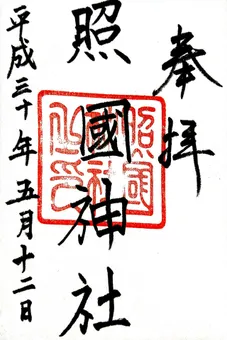 奉拝
照國神社
平成三十年五月十二日
照国神社之印